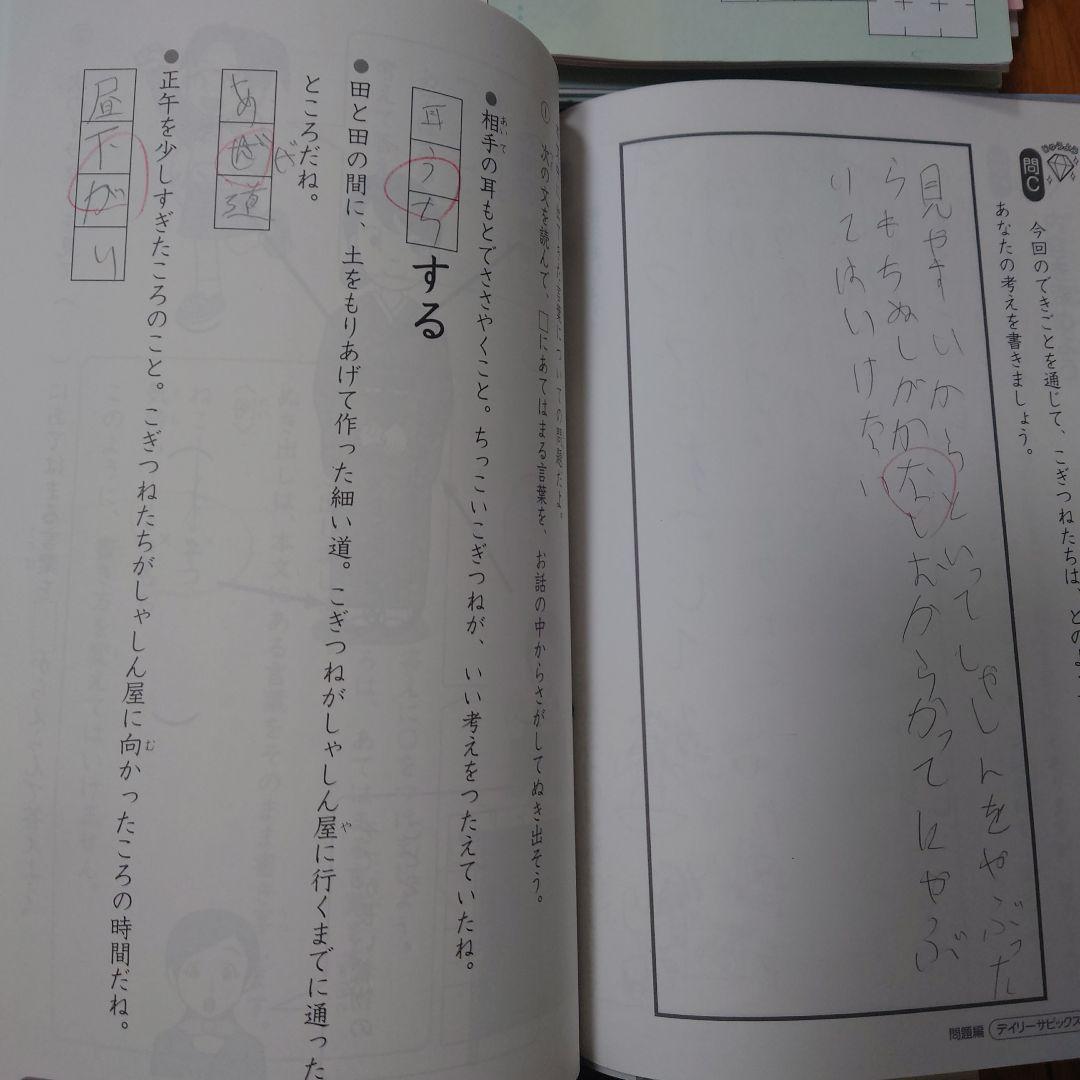 じゅうよう
問C 今回のできごとを通じて、こぎつねたちは、
あなたの考えを書きましょう。
見やすいからといってしゃしんをやぶった
らもちぬしがかなし
かってにやぶ
いてはいけない
問題編 デイリーサピックス
① 次の文を読んで、□にあてはまる言葉を、お話の中からさがしてぬき出そう。
● 相手の耳もとでささやくこと。ちっこいこぎつねが、いい考えをつたえていたね。
あいて
耳うちする
● 田と田の間に、土をもりあげて作った細い道。こぎつねがしゃしん屋に行くまでに通った
や
ところだね。
あぜ道
ぜ
● 正午を少しすぎたころのこと。こぎつねたちがしゃしん屋に向かったころの時間だね。
む
昼下がり